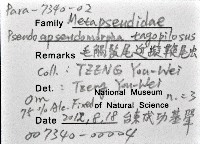 Para-7340-02
Family Metapseudidae
Pseudoapseudomorpha tagopilosus
Remarks 毛腳鬚尾擬鞭尾蟲
Coll.: TZENG You-Wei
Det.: Tzeng You-Wei
0m National Museum n.=3
75% Alc. Fixed of Natural Science
Date 2012.8.18 台東成功基翬
007340-00004